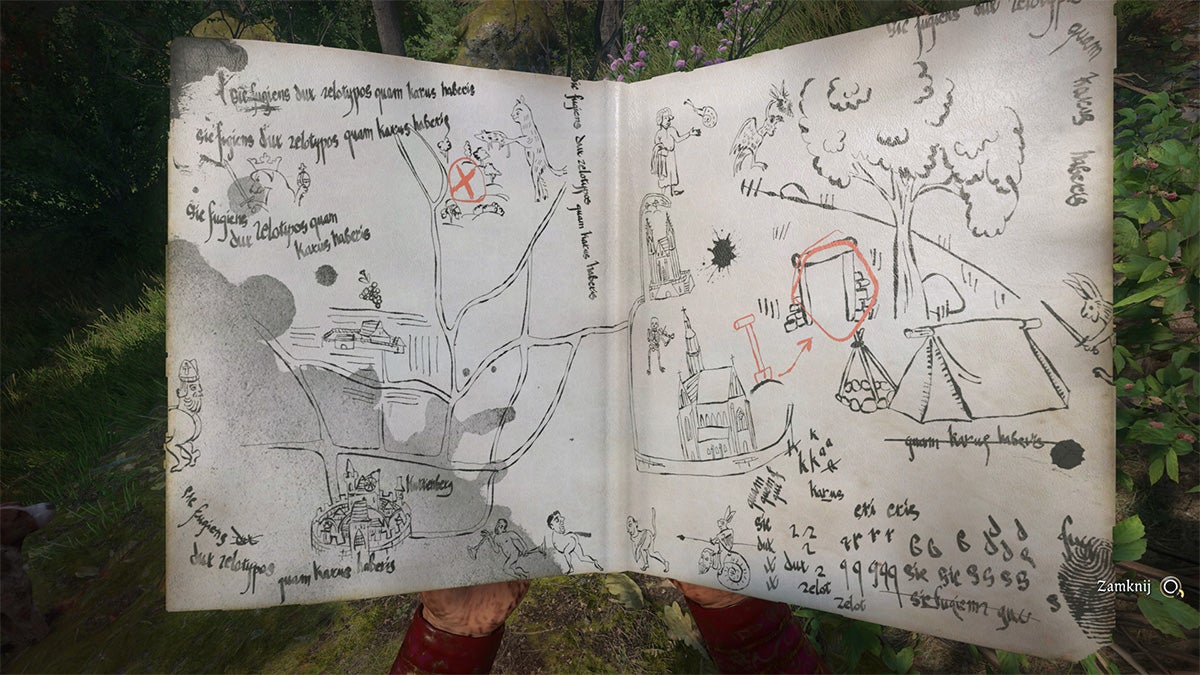 sic fugiens dux zelotypos quam karus haberis
sic fugiens dux zelotypos quam karus haberis
sic fugiens dux zelotypos quam
karus haberis
sic fugiens dux zelotypos quam karus haberis
Kuttenberg
sic fugiens dux
dux zelotypos
quam karus haberis
sic fugiens dux zelotypos
quam
karus
haberis
quam karus haberis
k
k a
k k a
karus
quam
quam
eri eris
sic
dux
dux 2
zelot
zelot
sic sic
sic fugiens
Zamknij